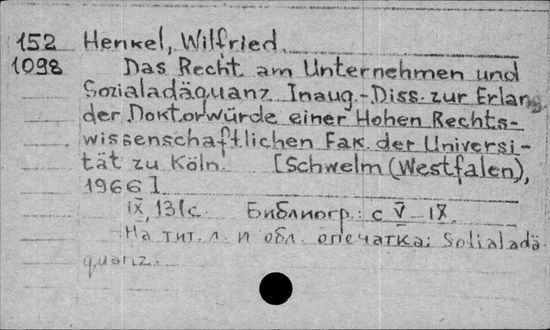 152 Henkel, Wilfried.
1098 Das Recht am Unternehmen und
Sozialadäquanz. Inaug.-Diss. zur Erlang.
der Doktorwürde einer Hohen Rechts-
wissenschaftlichen Fak. der Universi-
tät zu Köln. [Schwelm (Westfalen),
1966].
IX, 131 с. Библиогр.: с V-IX.
На тит. л. и обл. опечатка: Solialadä-
quanz.